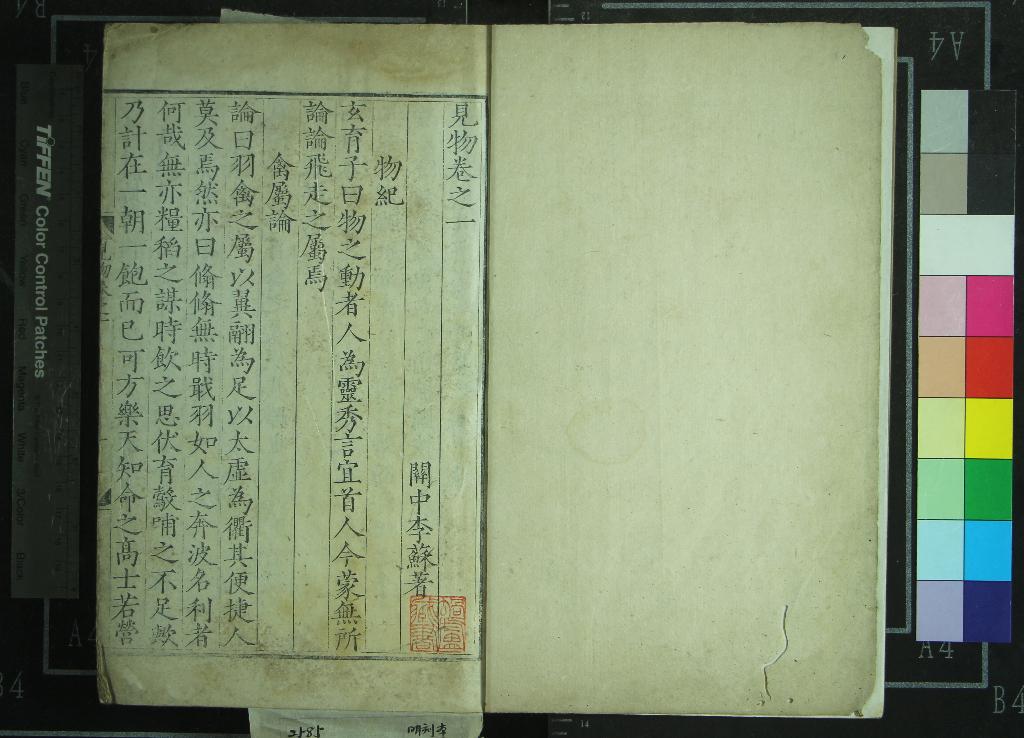 見物卷之一
關中李蘇著
物紀
玄育子曰物之動者人為靈秀言宜首人今蒙無所
論論飛走之屬焉
禽屬論
論曰羽禽之屬以翼翮為足以太虛為衢其便捷人
莫及焉然亦曰翛翛無時戢羽如人之奔波名利者
何哉無亦糧稻之謀時飲之思伏育鷇哺之不足歟
乃計在一朝一飽而已可方樂天知命之高士若營
藏書
2185
明刻本
TIFFEN Color Control Patches
Blue
Cyan
Green
Yellow
Red
Magenta
White
3/Color
Black
A4
A4
A4
B4
B4
12
14